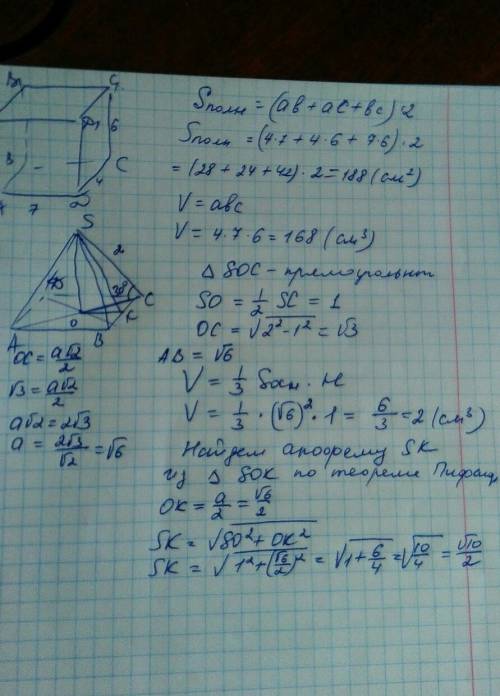 B₁ C₁
D₁ 6
B C
4
7 D
Sполн = (ab + ac + bc) · 2
Sполн = (4·7 + 4·6 + 7·6) · 2
= (28 + 24 + 42) · 2 = 188 (см²)
V = abc
V = 4·7·6 = 168 (см³)
S
2
30° C
K
A O B
OC = a√2/2
√3 = a√2/2
a√2 = 2√3
a = 2√3/√2 = √6
△ SOC - прямоугольн
SO = 1/2 SC = 1
OC = √(2² - 1²) = √3
AB = √6
V = 1/3 Sосн · H
V = 1/3 · (√6)² · 1 = 6/3 = 2 (см³)
Найдем апофему SK
из △ SOK по теореме Пифаг
OK = a/2 = √6/2
SK = √(SO² + OK²)
SK = √(1² + (√6/2)²) = √(1 + 6/4) = √(10/4) = √10/2